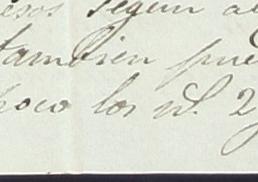 esos segun a
tambien pue
hoco los ul. 2